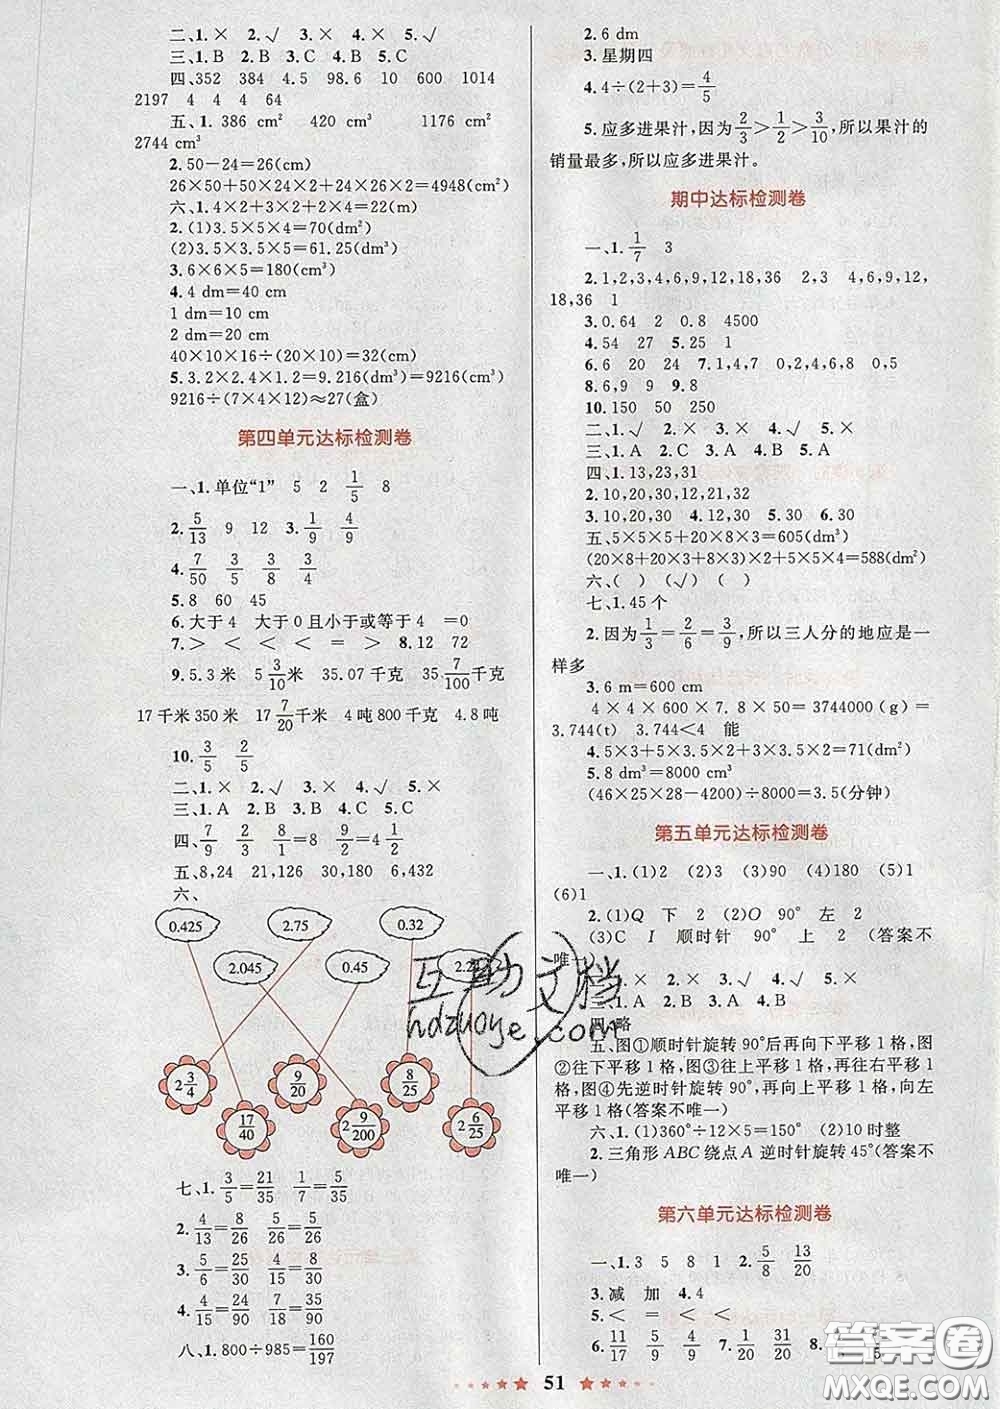 二、1.× 2.√ 3.× 4.× 5.√
三、1.B 2.B 3.C 4.B 5.C
四、352 384 4.5 98.6 10 600 1014
2197 4 4 4 64
五、1. 386 cm² 420 cm³ 1176 cm²
2744 cm³
2.50-24=26(cm)
26×50+50×24×2+24×26×2=4948(cm²)
六、1.4×2+3×2+2×4=22(m)
2.(1)3.5×5×4=70(dm²)
(2)3.5×3.5×5=61.25(dm³)
3.6×6×5=180(cm³)
4.4 dm=40 cm
1 dm=10 cm
2 dm=20 cm
40×10×16÷(20×10)=32(cm)
5.3.2×2.4×1.2=9.216(dm³)=9216(cm³)
9216÷(7×4×12)≈27(盒)
第四单元达标检测卷
一、1.单位“1” 5 2 1/5 8
2. 5/13 9 12 3. 1/9 4/9
4. 7/50 3/5 3/8 3/4
5.8 60 45
6.大于4 大于0且小于或等于4 =0
7.> < < < = > 8.12 72
9.5.3米 5 3/10米 35.07千克 35 7/100千克
17千米350米 17 7/20千米 4吨800千克 4.8吨
10. 3/5 2/5
二、1.× 2.√ 3.× 4.√ 5.×
三、1.A 2.B 3.B 4.C 5.C
四、7/9 2/3 8/1=8 9/2=4 1/2
五、8,24 21,126 30,180 6,432
六、
0.425 2.75 0.32
2.045 0.45
2 3/4 9/20 8/25
17/40 2 9/200 2 6/25
七、1. 3/5=21/35 1/7=5/35
2. 4/13=8/26 5/26=5/26
3. 5/6=25/30 4/15=8/30
4. 4/15=24/90 7/9=70/90
八、1.800÷985=160/197
2.6 dm
3.星期四
4.4÷(2+3)=4/5
5.应多进果汁,因为2/3>1/2>3/10,所以果汁的
销量最多,所以应多进果汁。
期中达标检测卷
一、1. 1/7 3
2.1,2,3,4,6,9,12,18,36 2,3 4,6,9,12,
18,36 1
3.0.64 2 0.8 4500
4.54 27 5.25 1
6.6 20 24 7.1,4,7 0,2,4,6,8 0,5
8.6,9 9 9.8
10.150 50 250
二、1.√ 2.× 3.× 4.√ 5.×
三、1.A 2.C 3.A 4.B 5.A
四、1.13,23,31
2.10,20,30,12,21,32
3.10,20,30 4.12,30 5.30 6.30
五、5×5×5+20×8×3=605(dm³)
(20×8+20×3+8×3)×2+5×5×4=588(dm²)
六、( ) (√) ( )
七、1.45个
2.因为1/3=2/6=3/9,所以三人分的地应是一
样多
3.6 m=600 cm
4×4×600×7.8×50=3744000(g)=
3.744(t) 3.744<4 能
4.5×3+5×3.5×2+3×3.5×2=71(dm²)
5.8 dm³=8000 cm³
(46×25×28-4200)÷8000=3.5(分钟)
第五单元达标检测卷
一、1.(1)2 (2)3 (3)90 (4)180 (5)1
(6)1
2.(1)Q 下 2 (2)O 90° 左 2
(3)C I 顺时针 90° 上 2 (答案不
唯一)
二、1.√ 2.× 3.× 4.√ 5.√
三、1.A 2.B 3.A 4.B 5.A
四、略
五、图①顺时针旋转90°后再向下平移1格,图
②往下平移1格,图③往上平移1格,再往右平移1
格,图④先逆时针旋转90°,再向上平移1格,向左
平移1格(答案不唯一)
六、1.(1)360°÷12×5=150° (2)10时整
2.三角形ABC绕点A逆时针旋转45°(答案不
唯一)
第六单元达标检测卷
一、1.3 5 8 1 2. 5/8 13/20
3.减 加 4.4
5.< = < <
6. 11/17 5/9 4/9 7. 1/20 31/20 8.
51
互助文档
hdzuoye.com
答案圈
MXQE.COM